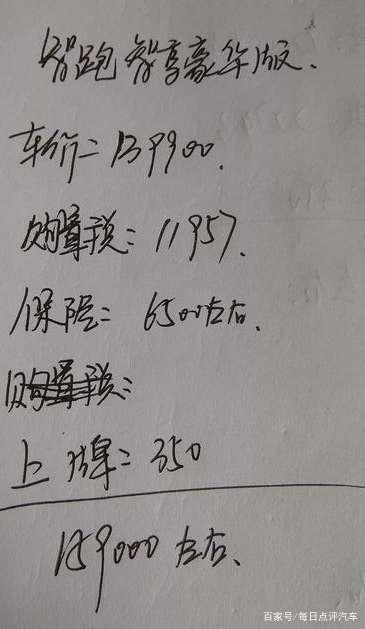 智跑 智享豪华版.
车价=139900.
购置税: 11957.
保险= 6500左右.
购置税=
上牌=350
159000 左右.
百家号/每日点评汽车